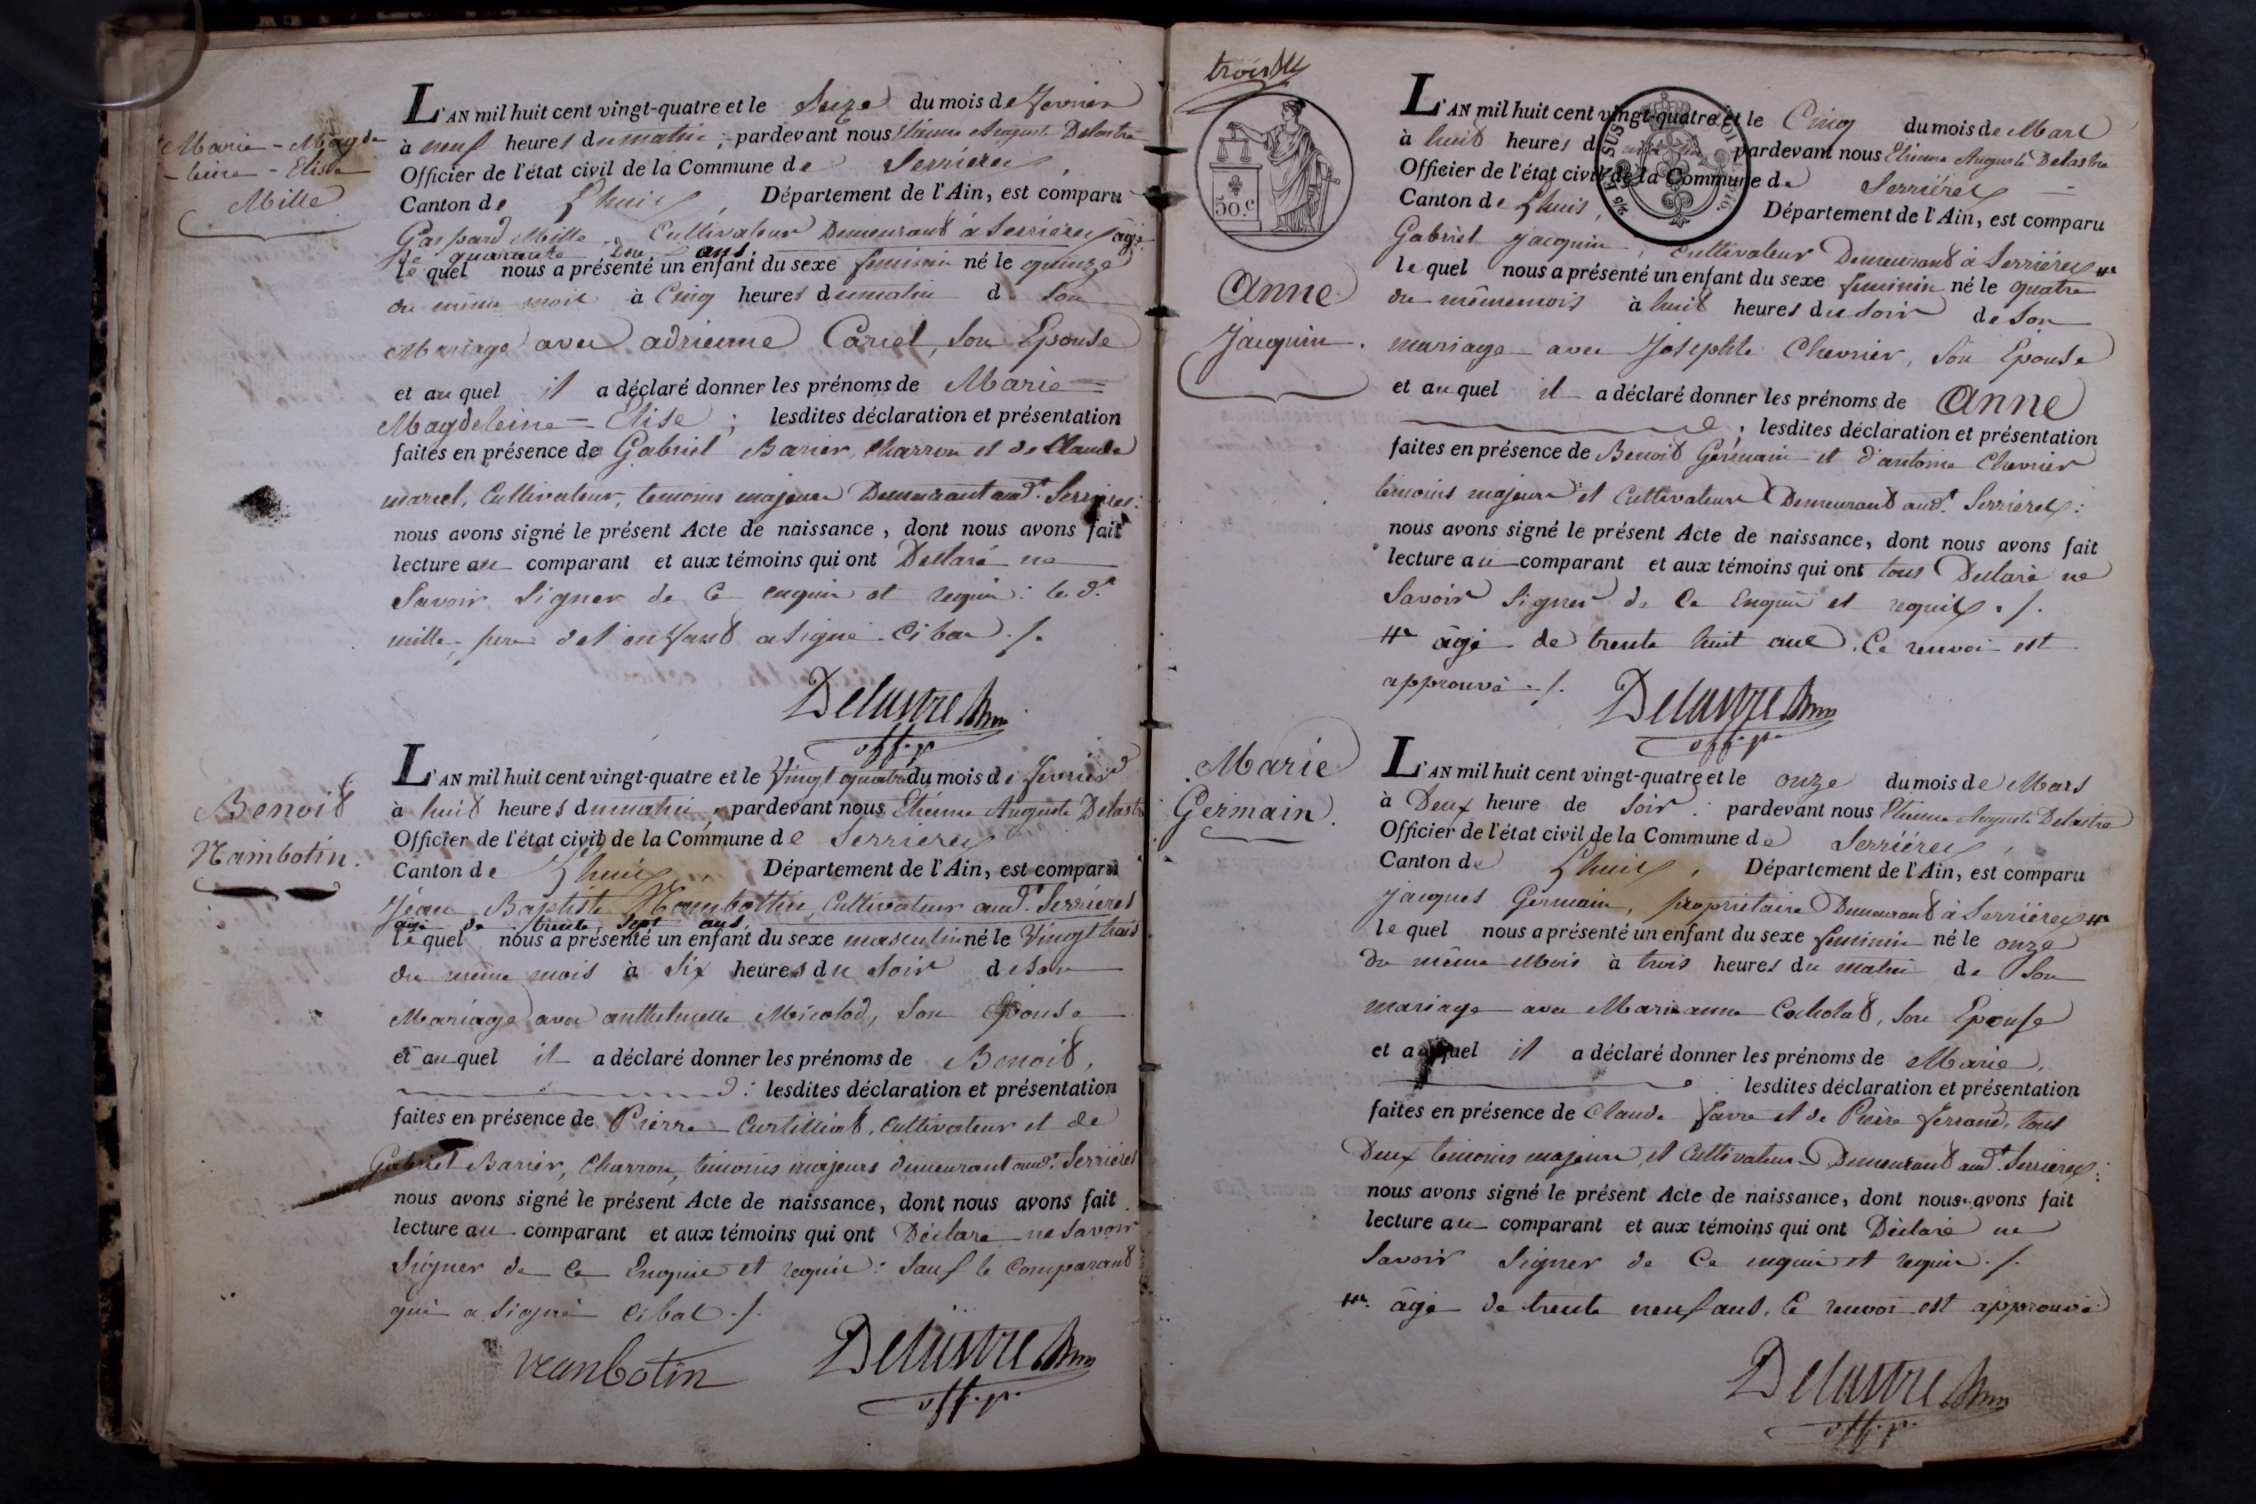 Marie - Magde
- leine - Elise
Mille
L'AN mil huit cent vingt-quatre et le Seize du mois de fevrier
à neuf heures du matin, pardevant nous Etienne Auguste Delastre
Officier de l'état civil de la Commune de Serrieres,
Canton de Lhuis, Département de l'Ain, est comparu
Gaspard Mille, Cultivateur Demeurant à Serrieres, agé
de quarante deux ans,
le quel nous a présenté un enfant du sexe feminin né le quinze
du même mois à Cinq heures du matin de son
Mariage avec adrienne Cariel, son Epouse
et au quel il a déclaré donner les prénoms de Marie =
Magdeleine = Elise ; lesdites déclaration et présentation
faites en présence de Gabriel Barier, Charron et de Claude
marcel, Cultivateur, temoins majeurs Demeurant aud.t Serrieres:
nous avons signé le présent Acte de naissance, dont nous avons fait
lecture au comparant et aux témoins qui ont Déclaré ne
Savoir Signer de Ce enquis et requis: le d.t
mille, pere de l'enfant a signé Ci bas ./.
Delastre
off. p.
Benoit
Nambotin.
L'AN mil huit cent vingt-quatre et le Vingt quatre du mois de fevrier
à huit heures du matin, pardevant nous Etienne Auguste Delastre
Officier de l'état civil de la Commune de Serrieres
Canton de Lhuis, Département de l'Ain, est comparu
Jean Baptiste Nambottin, Cultivateur aud.t Serrieres
âgé de trente sept ans,
le quel nous a présenté un enfant du sexe masculin né le Vingt trois
du même mois à Six heures du Soir de son
Mariage avec anthelmette Micolod, son Epouse
et au quel il a déclaré donner les prénoms de Benoit,
: lesdites déclaration et présentation
faites en présence de Pierre Curtilliat, Cultivateur et de
Gabriel Barier, Charron, témoins majeurs demeurant aud.t Serrieres
nous avons signé le présent Acte de naissance, dont nous avons fait
lecture au comparant et aux témoins qui ont Déclaré ne Savoir
Signer de Ce Enquis et requis: Sauf le Comparant
qui a Signé Ci bas ./.
nanbotin Delastre
off. p.
trois
50.c
Anne
Jacquin.
L'AN mil huit cent vingt-quatre et le Cinq du mois de Mars
à huit heures du pardevant nous Etienne Auguste Delastre
Officier de l'état civil de la Commune de Serrieres
Canton de Lhuis, Département de l'Ain, est comparu
Gabriel Jacquin, Cultivateur Demeurant à Serrieres
le quel nous a présenté un enfant du sexe feminin né le quatre
du même mois à huit heures du soir de son
mariage avec Josephte Chevrier, son Epouse
et au quel il a déclaré donner les prénoms de Anne
; lesdites déclaration et présentation
faites en présence de Benoit Germain et d'antoine Chevrier
témoins majeurs et Cultivateurs Demeurant aud.t Serrieres:
nous avons signé le présent Acte de naissance, dont nous avons fait
lecture au comparant et aux témoins qui ont tous Déclaré ne
Savoir Signer de Ce Enquis et requis ./.
âgé de trente huit ans. Ce renvoi est
approuvé ./. Delastre
off. p.
Marie
Germain.
L'AN mil huit cent vingt-quatre et le onze du mois de Mars
à Deux heure de Soir: pardevant nous Etienne Auguste Delastre
Officier de l'état civil de la Commune de Serrieres,
Canton de Lhuis, Département de l'Ain, est comparu
Jacques Germain, propriétaire Demeurant à Serrieres
le quel nous a présenté un enfant du sexe feminin né le onze
du même Mois à trois heures du matin de Son
mariage avec Marie anne Cocholat, son Epouse
et au quel il a déclaré donner les prénoms de Marie,
lesdites déclaration et présentation
faites en présence de Claude favre et de Pierre ferrand, tous
Deux temoins majeurs, et Cultivateurs Demeurant aud.t Serrieres:
nous avons signé le présent Acte de naissance, dont nous avons fait
lecture au comparant et aux témoins qui ont Déclaré ne
Savoir Signer de Ce enquis et requis ./.
âgé de trente neuf ans. Ce renvoi est approuvé
Delastre
off. p.